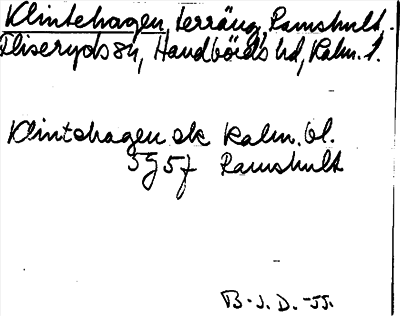 Klintehagen, terräng, Ramshult.
Fliseryds sn, Handbörds hd, Kalm. l.
Klintehagen ek Kalm. bl.
5g57 Ramshult
B.J.D. -55.